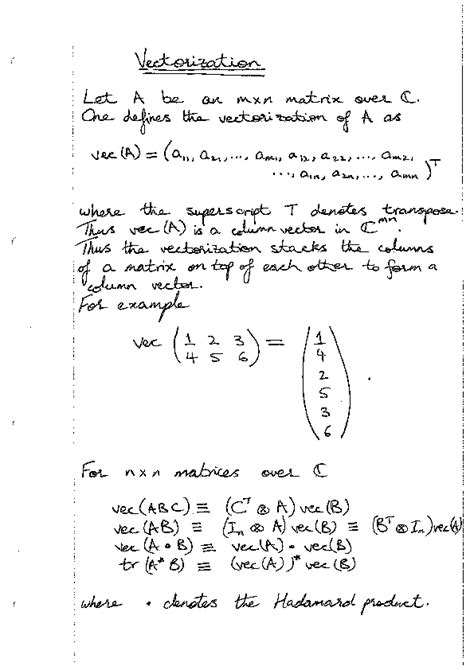 Vectorization
Let A be an m×n matrix over ℂ.
One defines the vectorization of A as
vec(A) = (a₁₁, a₂₁, ..., aₘ₁, a₁₂, a₂₂, ..., aₘ₂,
..., a₁ₙ, a₂ₙ, ..., aₘₙ)ᵀ
where the superscript T denotes transpose.
Thus vec(A) is a column vector in ℂᵐⁿ.
Thus the vectorization stacks the columns
of a matrix on top of each other to form a
column vector.
For example
vec (1 2 3
4 5 6) = (1
4
2
5
3
6) .
For n×n matrices over ℂ
vec(ABC) ≡ (Cᵀ ⊗ A) vec(B)
vec(AB) ≡ (Iₙ ⊗ A) vec(B) ≡ (Bᵀ ⊗ Iₙ) vec(A
vec(A • B) ≡ vec(A) • vec(B)
tr(A* B) ≡ (vec(A))* vec(B)
where • denotes the Hadamard product.